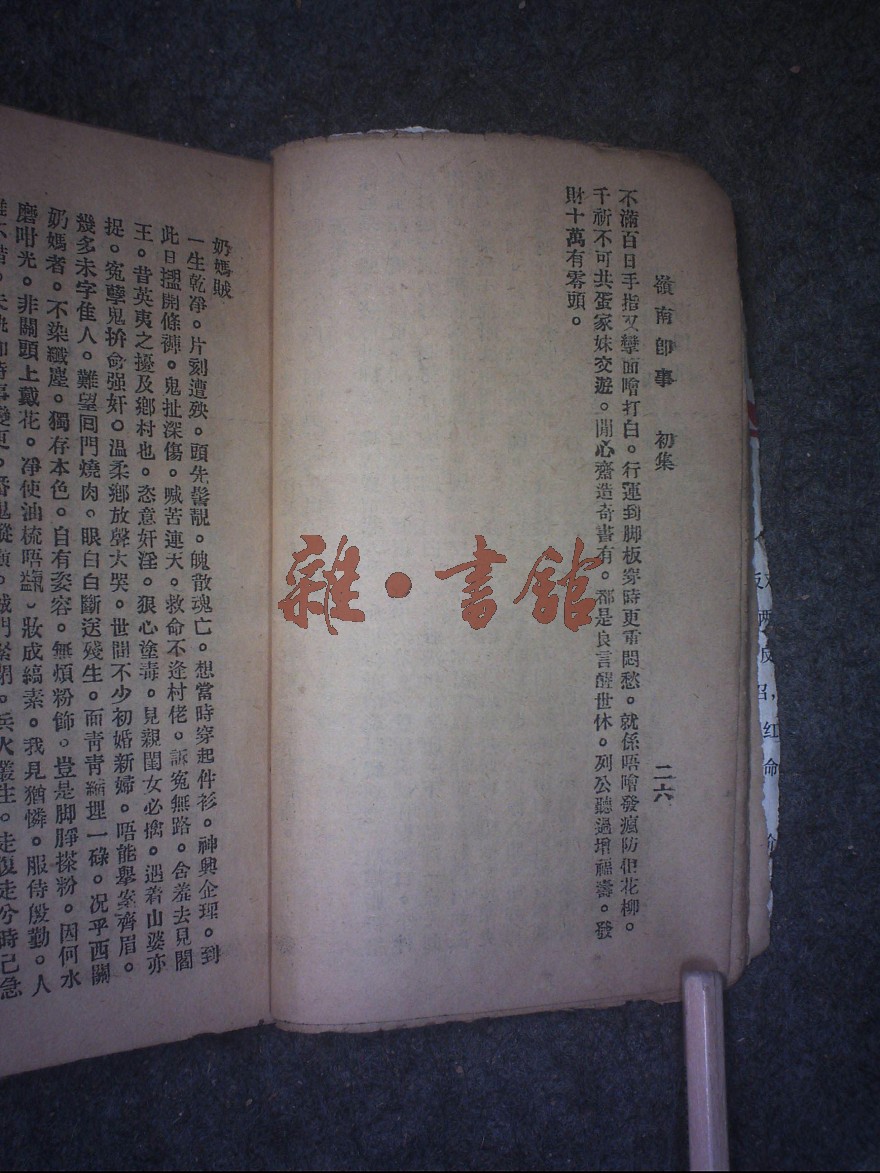 嶺南即事　初集　二六
不滿百日手指又孿面噲打白。行運到脚板穿時更重悶愁。就係唔噲發瘋防佢花柳。
千祈不可共蛋家妹交遊。閒心齋造奇書有。都是良言醒世休。列公聽過增福壽。發
財十萬有零頭。
奶媽賊
一生乾凈。片刻遭殃。頭先髻靚。魄散魂亡。想當時穿起件衫。神興企理。到
此日搵開條褲。鬼扯深傷。喊苦連天。救命不逢村佬。訴寃無路。舍羞去見閻
王。昔英夷之擾及鄉村也。恣意奸淫。狠心塗毒。見親閨女必擒。遇着山婆亦
捉。寃孽鬼拚命强奸。温柔鄉放聲大哭。世間不少初婚新婦。唔能舉案齊眉。
幾多未字佳人。難望囘門燒肉。眼白白斷送殘生。面靑靑 埋一碌。况乎西關
奶媽者。不染纖塵。獨存本色。自有姿容。無煩粉飾。豈是脚睜搽粉。因何水
磨咁光。非關頭上戴花。凈使油梳唔 。妝成縞素。我見猶憐。服侍殷勤。人
時事變更。番鬼 城門緊閉。兵火叢生。走復走兮時已急
雜·書舘
红
命